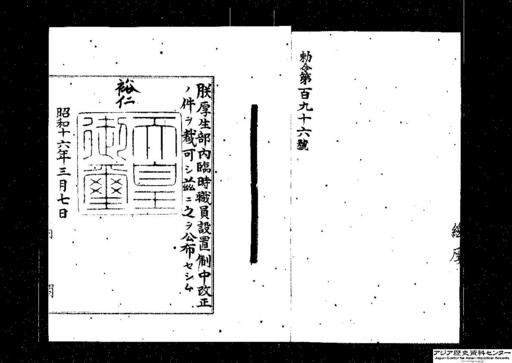 勅令第百九十六號
朕厚生部內臨時職員設置制中改正
ノ件ヲ裁可シ茲ニ之ヲ公布セシム
裕仁
天皇御璽
昭和十六年三月七日
內閣
アジア歴史資料センター
Japan Center for Asian Historical Records